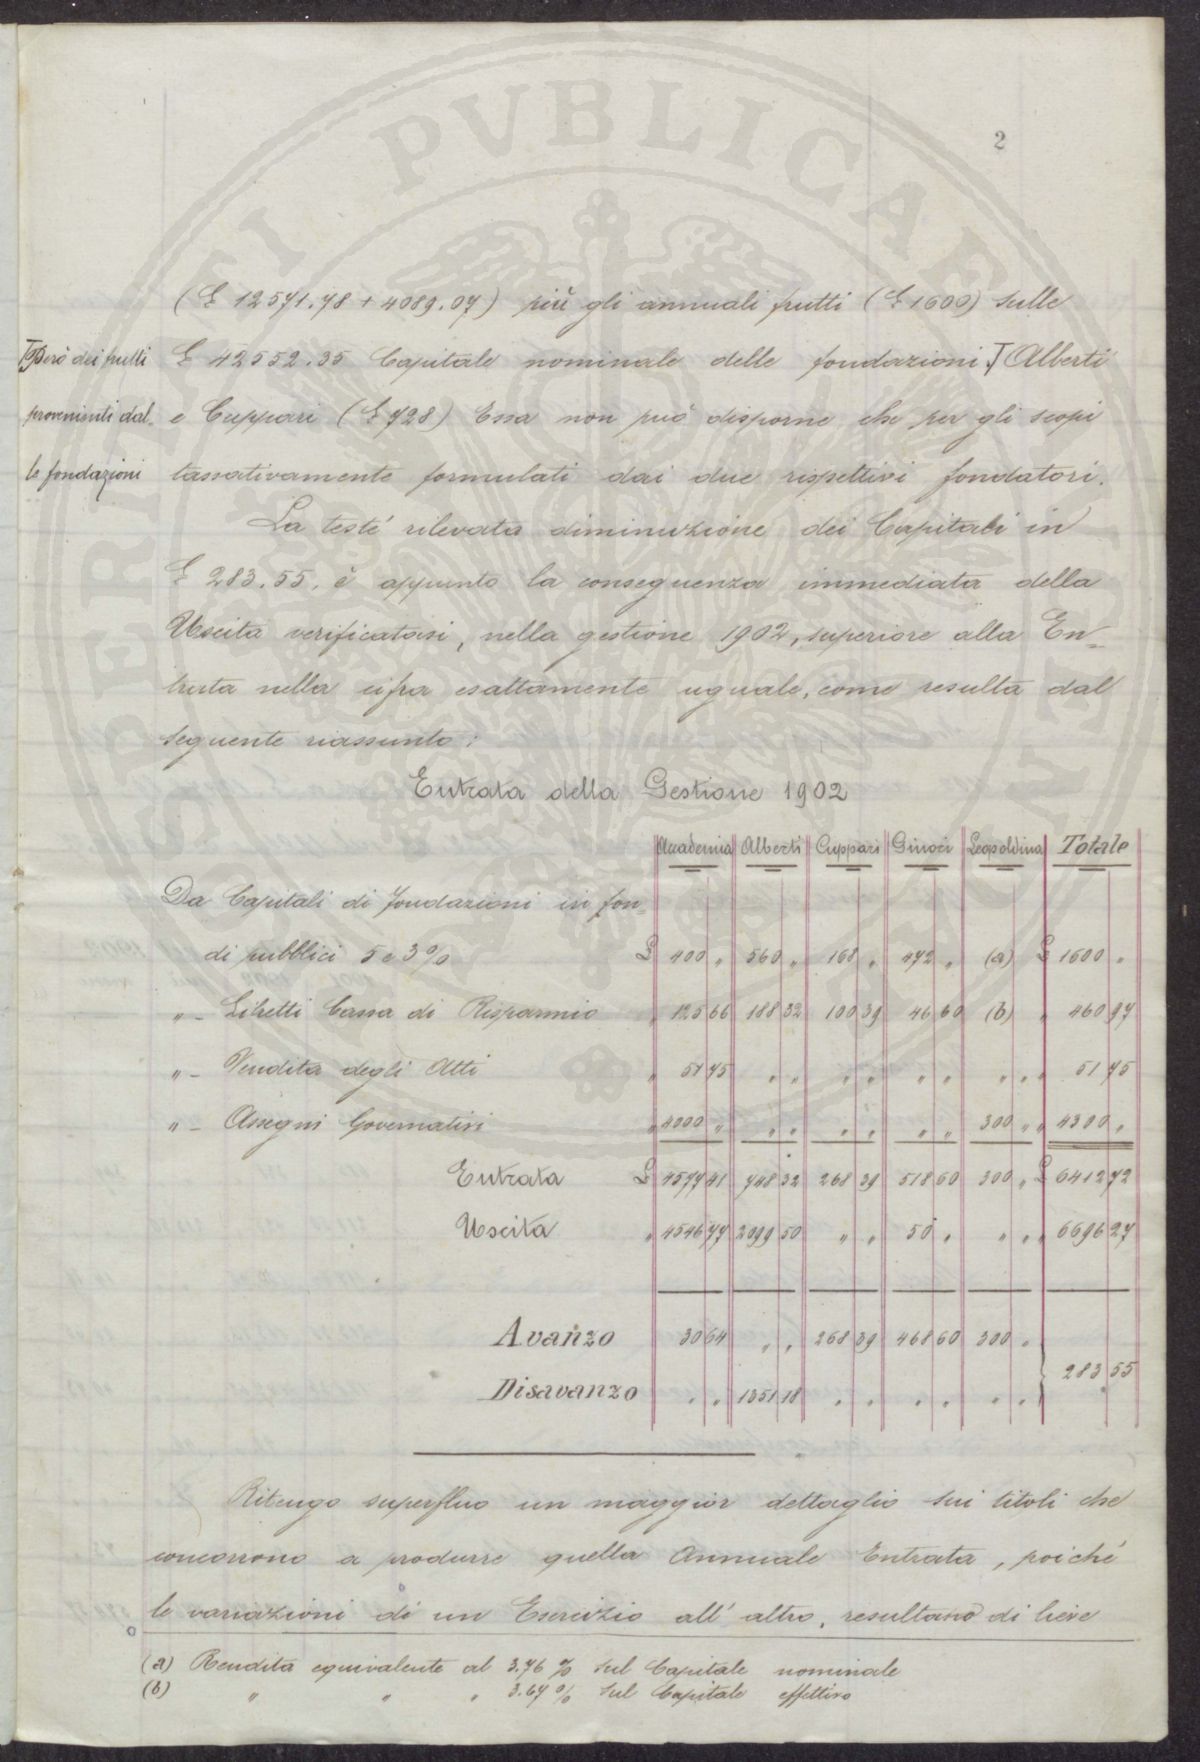 SPERIENTI PVBLICAE VTILITATI
2
(£ 12571.78 + 4089.07) più gli annuali frutti (£ 1600) sulle
£ 42552.35 Capitale nominale delle fondazioni.T Alberti
e Cuppari (£ 728) Essa non può disporne che per gli scopi
tassativamente formulati dai due rispettivi fondatori.
T Però dei frutti
provenienti dal-
le fondazioni
La testé rilevata diminuzione dei Capitali in
£ 283.55. è appunto la conseguenza immediata della
Uscita verificatasi, nella gestione 1902, superiore alla En=
trata nella cifra esattamente uguale, come resulta dal
seguente riassunto:
Entrata della Gestione 1902
Accademia Alberti Cuppari Ginori Leopoldina Totale
Da Capitali di Fondazioni in fon=
di pubblici 5 e 3% £ 400 " 560 " 168 " 472 " (a) £ 1600 "
" - Libretti Cassa di Risparmio " 125 66 188 32 100 39 46 60 (b) " 460 97
" - Vendita degli Atti " 51 75 " " " " " " " " " 51 75
" - Assegni Governativi " 4000 " " " " " " " 300 " " 4300 "
Entrata £ 4577 41 748 32 268 39 518 60 300 " £ 6412 72
Uscita " 4546 77 2099 50 " " 50 " " " " 6696 27
Avanzo 30 64 " " 268 39 468 60 300 "
283 55
Disavanzo " " 1351 18 " " " " " "
Ritengo superfluo un maggior dettaglio sui titoli che
concorrono a produrre quella Annuale Entrata, poiché
le variazioni di un Esercizio all' altro, resultano di lieve
(a) Rendita equivalente al 3.76 % sul Capitale nominale
(b) " " " 3.67 % sul Capitale effettivo